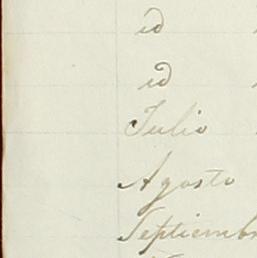 id
id
Julio
Agosto
Septiembr